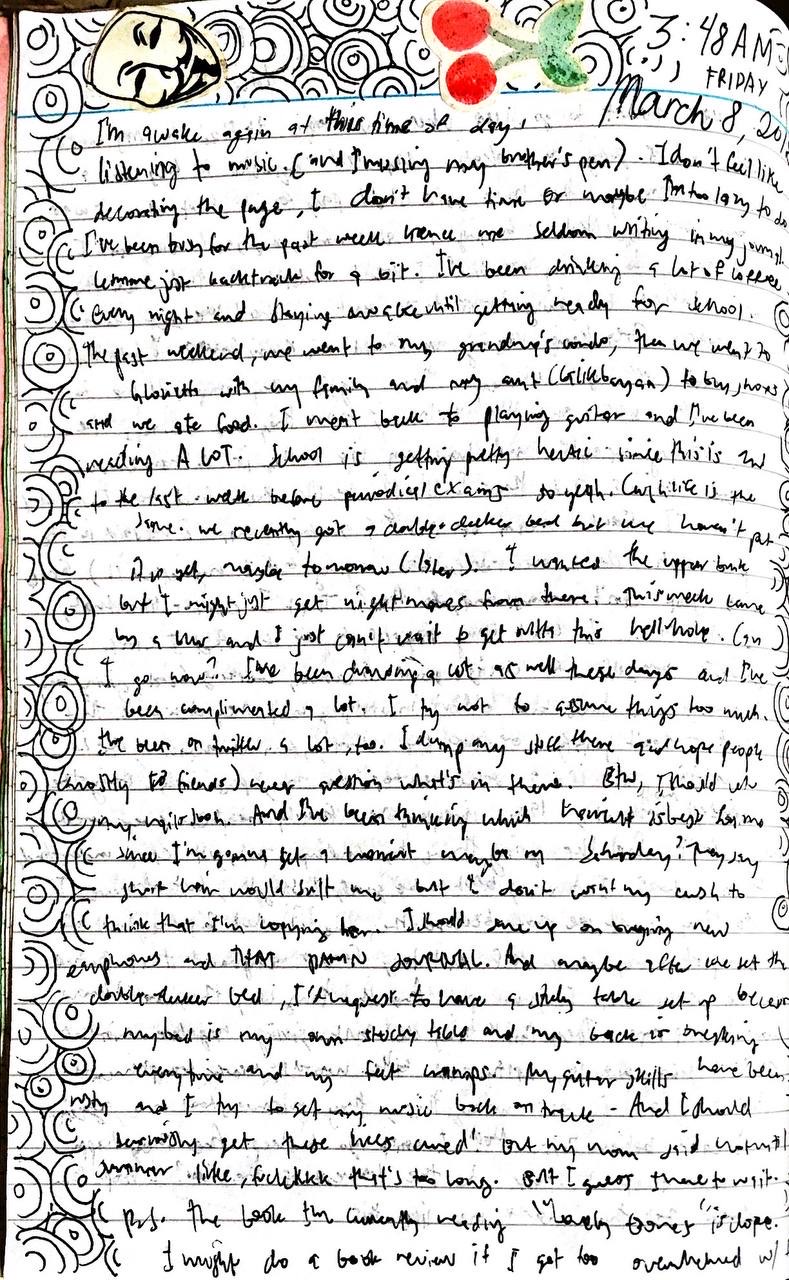 3:48 AM
FRIDAY
March 8, 201
I'm awake again at this time of day,
listening to music. (and I'm using my brother's pen). I don't feel like
decorating the page, I don't have time or maybe I'm too lazy to do
I've been busy for the past week hence me seldom writing in my journal.
Lemme just backtrack for a bit. I've been drinking a lot of coffee
every night and staying awake until getting ready for school.
The past weekend, we went to my grandma's condo, then we went to
with my family and my aunt (Galikbayan) to buy shoes
and we ate food. I went back to playing guitar and I've been
reading A LOT. School is getting pretty hectic since this is 2nd
to the last week before periodical exams so yeah. Crush life is the
same. we recently got a double-decker bed but we haven't put
it up yet, maybe tomorrow (later). I wanted the upper bunk
but I might just get nightmares from there. This week came
by a blur and I just can't wait to get outta this hellhole. Can
I go now? I've been drawing a lot as well these days and I've
been complimented a lot. I try not to assume things too much.
I've been on twitter a lot, too. I dump any stuff there and hope people
(mostly friends) never question what's in there. Btw, I should
my. And I've been thinking which haircut is best for me
since I'm gonna get a haircut maybe on Saturday? They say
short hair would suit me but I don't want my crush to
think that I'm copying her. I should save up on buying new
earphones and THAT DAMN JOURNAL. And maybe after we set the
double-decker bed, I'd request to have a study table set up because
my bed is my own study table and my back is breaking
everytime and my feet cramps. My guitar skills have been
rusty and I try to get my music back on track. And I should
seriously get these cured! But my mom said until
summer like, that's too long. But I guess I have to wait.
P.S. The book I'm currently reading "Lovely Bones" is dope.
I might do a book review if I got too overwhelmed w/